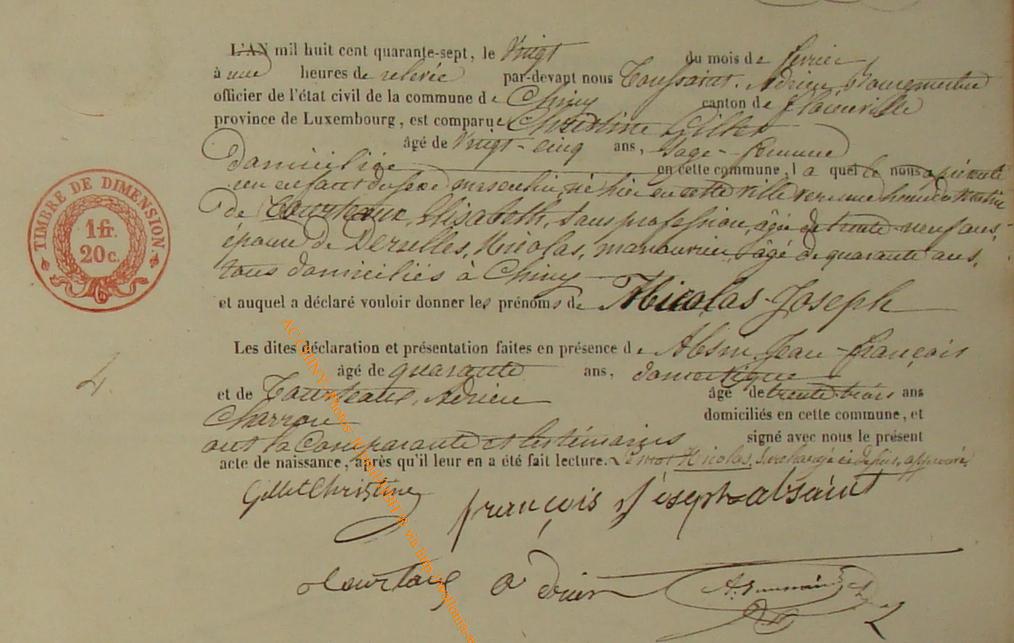 L'AN mil huit cent quarante-sept, le Vingt du mois de février
à une heures de relevée par-devant nous Toussaint, Adrien, Bourgmestre
officier de l'état civil de la commune de Chiny canton de Florenville
province de Luxembourg, est comparue Christine Gillet
âgé de Vingt-cinq ans, Sage-femme
domiciliée en cette commune, laquelle nous a présenté
un enfant du sexe masculin né hier en cette ville vers une heure du matin
de Elisabeth, sans profession, âgée de trente-neuf ans,
épouse de Derselles, Nicolas, manœuvre âgé de quarante ans,
tous domiciliés à Chiny
et auquel a déclaré vouloir donner les prénoms de Nicolas-Joseph
Les dites déclaration et présentation faites en présence de Jean-françois
âgé de quarante ans, domestique
et de Adrien âgé de trente trois ans
Charron domiciliés en cette commune, et
ont la Comparante et les témoins signé avec nous le présent
acte de naissance, après qu'il leur en a été fait lecture. Le mot Nicolas, Surchargé ci-dessus, approuvé
Gillet Christine
françois Joseph absaint
courtois adrien
A. Toussaint
TIMBRE DE DIMENSION.
1 fr.
20 c.
6
4